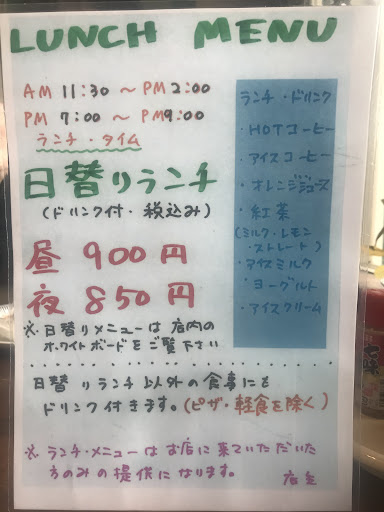 LUNCH MENU
AM 11:30 ～ PM 2:00
PM 7:00 ～ PM 9:00
ランチ・タイム
日替りランチ
(ドリンク付・税込み)
昼 900円
夜 850円
※日替りメニューは店内の
ホワイトボードをご覧下さい
ランチ・ドリンク
・HOTコーヒー
・アイスコーヒー
・オレンジジュース
・紅茶
(ミルク・レモン
・ストレート)
・アイスミルク
・ヨーグルト
・アイスクリーム
日替りランチ以外の食事にも
ドリンク付きます。(ピザ・軽食を除く)
※ランチ・メニューはお店に来ていただいた
方のみの提供になります。 店主